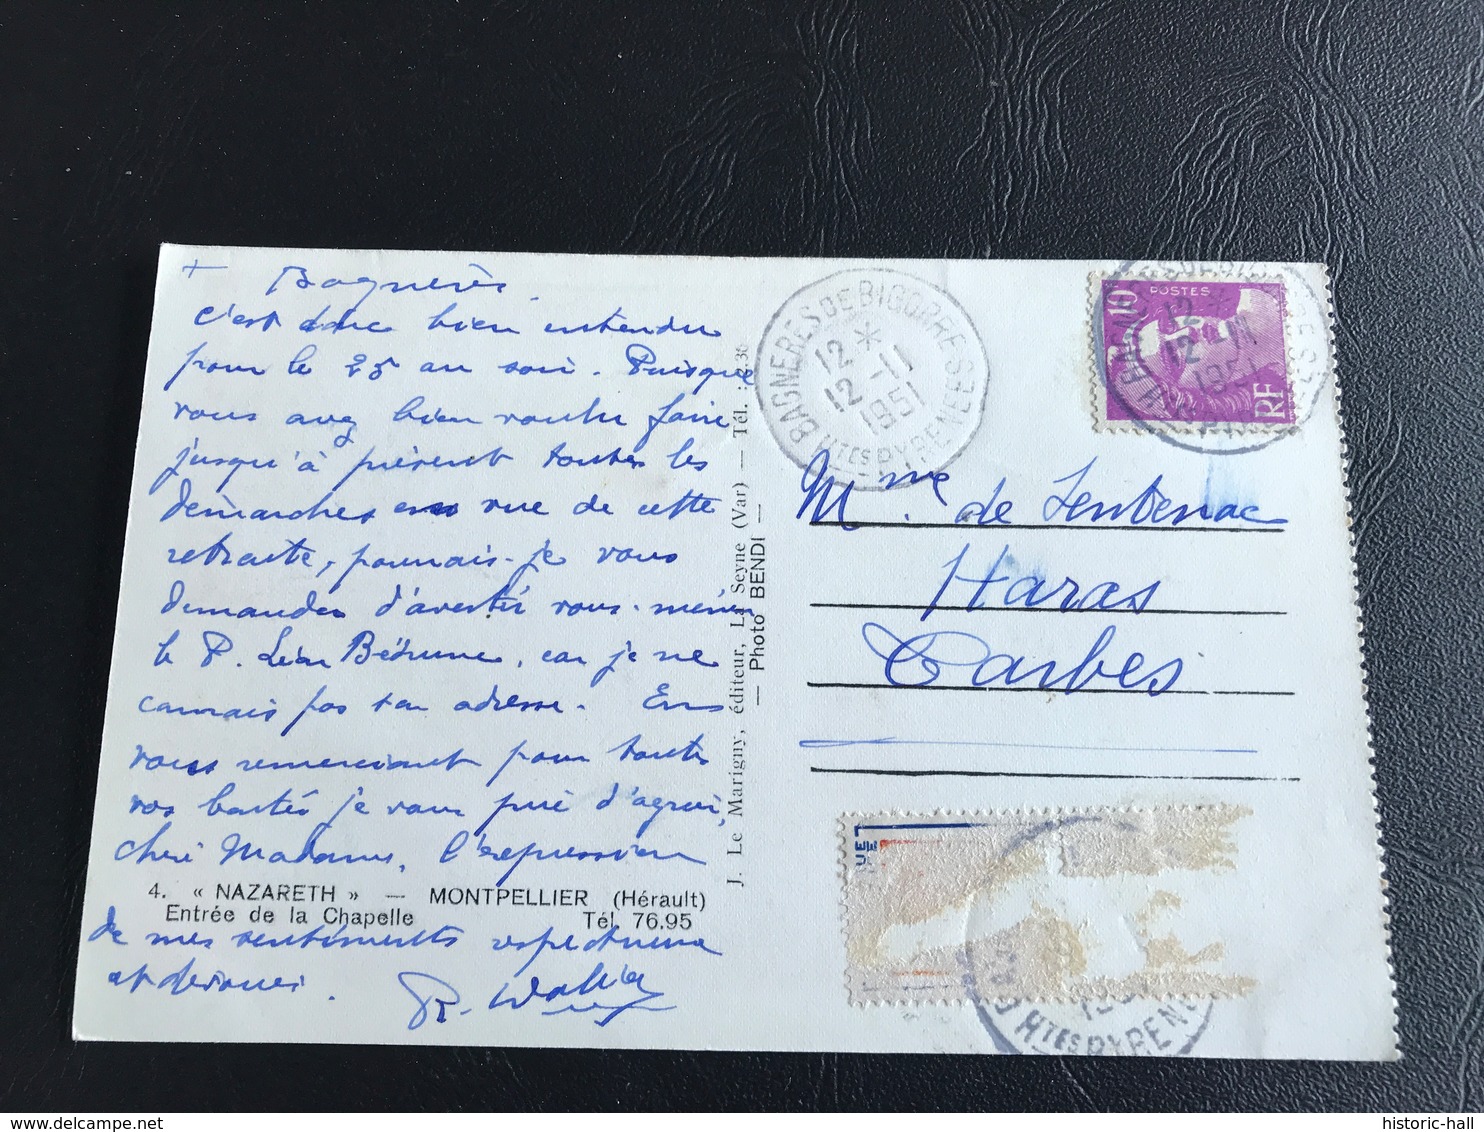 + Bagnères.
c'est donc bien entendu
pour le 25 au soir. Puisque
vous avez bien voulu faire
jusqu'à présent toutes les
démarches en vue de cette
retraite, pourrais-je vous
demander d'avertir vous-même
le P. Léon, car je ne
connais pas son adresse. En
vous remerciant pour toutes
vos bontés je vous prie d'agréer,
chère Madame, l'expression
4. « NAZARETH » — MONTPELLIER (Hérault)
Entrée de la Chapelle Tél. 76.95
de mes sentiments respectueux
et dévoués.
R.
J. Le Marigny, éditeur, La Seyne (Var) — Tél.
— Photo BENDI —
BAGNERES DE BIGORRE
12 *
12 -11
1951
HTES PYRENEES
POSTES
10
RF
12 *
12 -11
1951
Mme de
Haras
Tarbes
HTES PYRENE
historic-hall